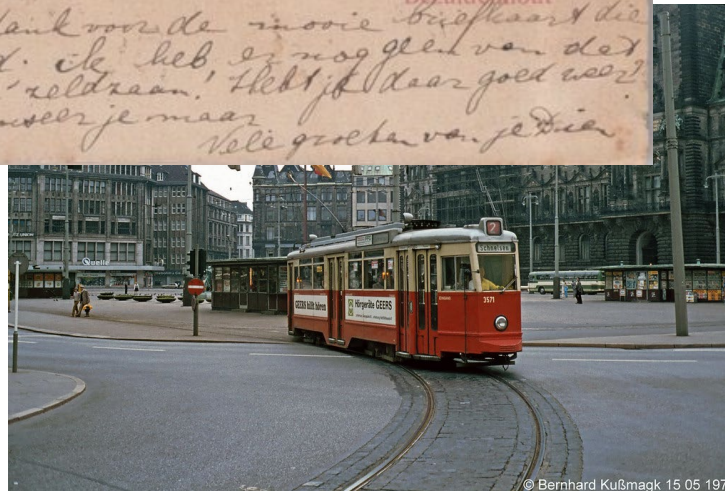 dank voor de mooie briefkaart die
ik heb er nog geen van dat
zeldzaam! Hebt je daar goed weer?
je maar
Vele groeten van je Dien
Quelle
2
Schnelsen
GEERS hilft hören
Hörgeräte GEERS
3571
© Bernhard Kußmagk 15 05 197